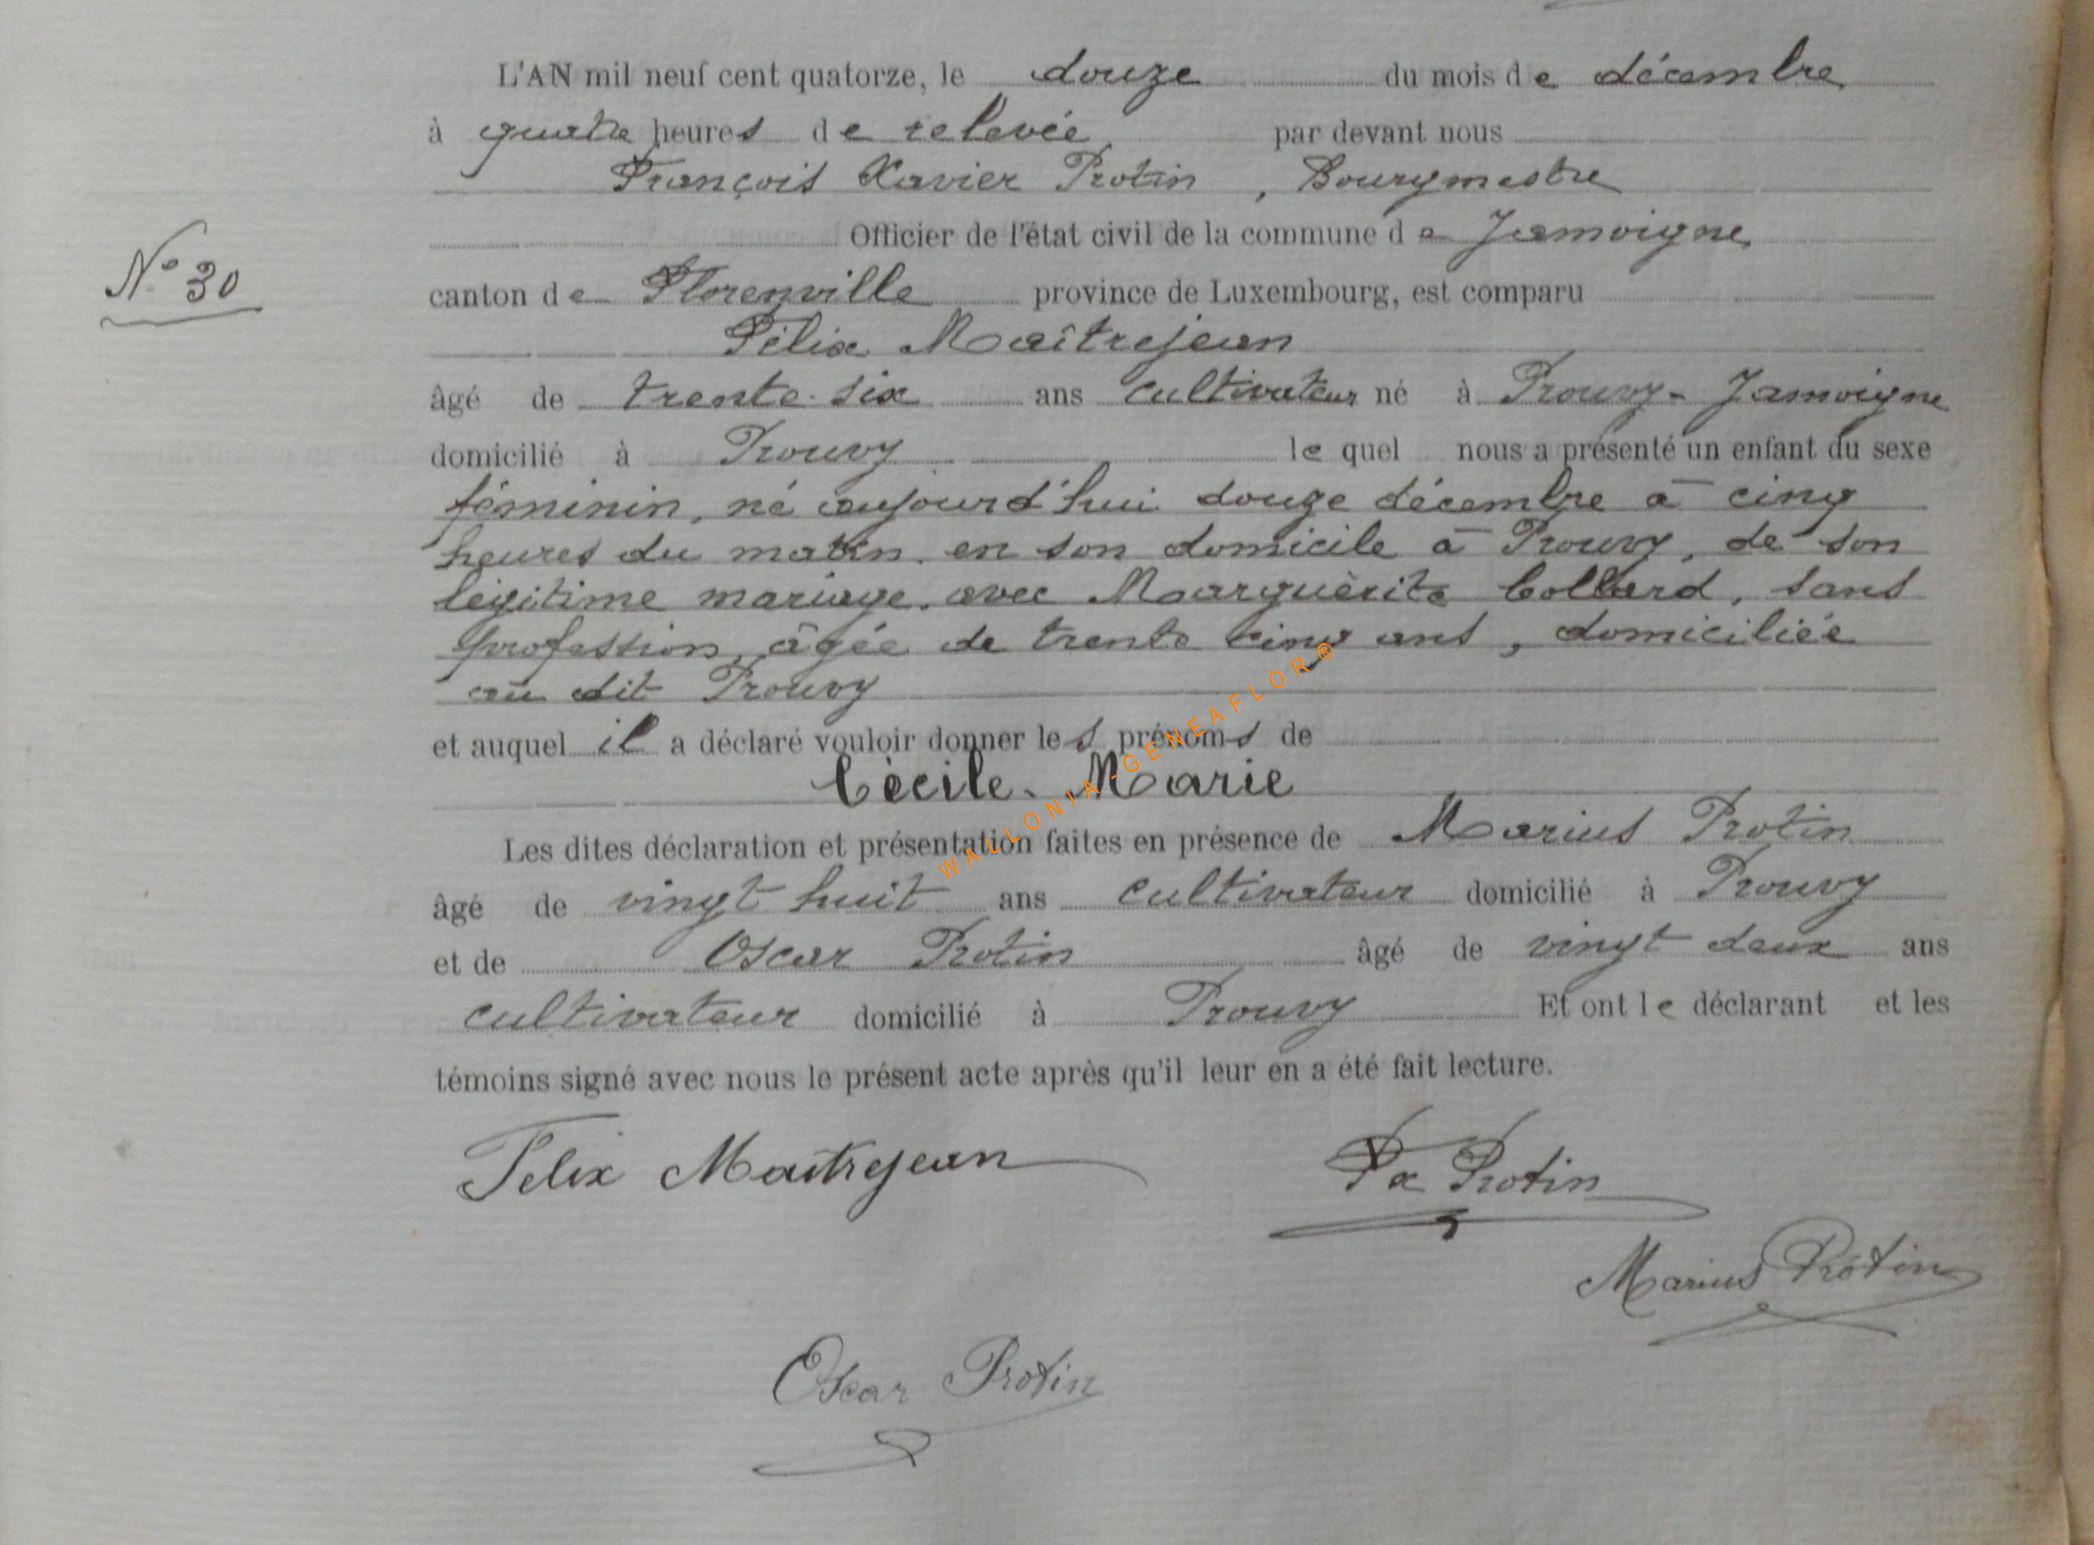 L'AN mil neuf cent quatorze, le douze du mois de décembre
à quatre heures de relevée par devant nous
François Xavier Protin, Bourgmestre
Officier de l'état civil de la commune de Jamoigne
N° 30
canton de Florenville province de Luxembourg, est comparu
Félix Maîtrejean
âgé de trente-six ans cultivateur né à Prouvy-Jamoigne
domicilié à Prouvy lequel nous a présenté un enfant du sexe
féminin, né aujourd'hui douze décembre à cinq
heures du matin en son domicile à Prouvy, de son
légitime mariage avec Marguèrite Collard, sans
profession, âgée de trente cinq ans, domiciliée
au dit Prouvy
et auquel il a déclaré vouloir donner les prénoms de
Cècile-Marie
Les dites déclaration et présentation faites en présence de Marius Protin
âgé de vingt huit ans cultivateur domicilié à Prouvy
et de Oscar Protin âgé de vingt deux ans
cultivateur domicilié à Prouvy Et ont le déclarant et les
témoins signé avec nous le présent acte après qu'il leur en a été fait lecture.
Felix Maîtrejean
Fx Protin
Marius Protin
Oscar Protin
WALLONIA-GENEAFLOR®